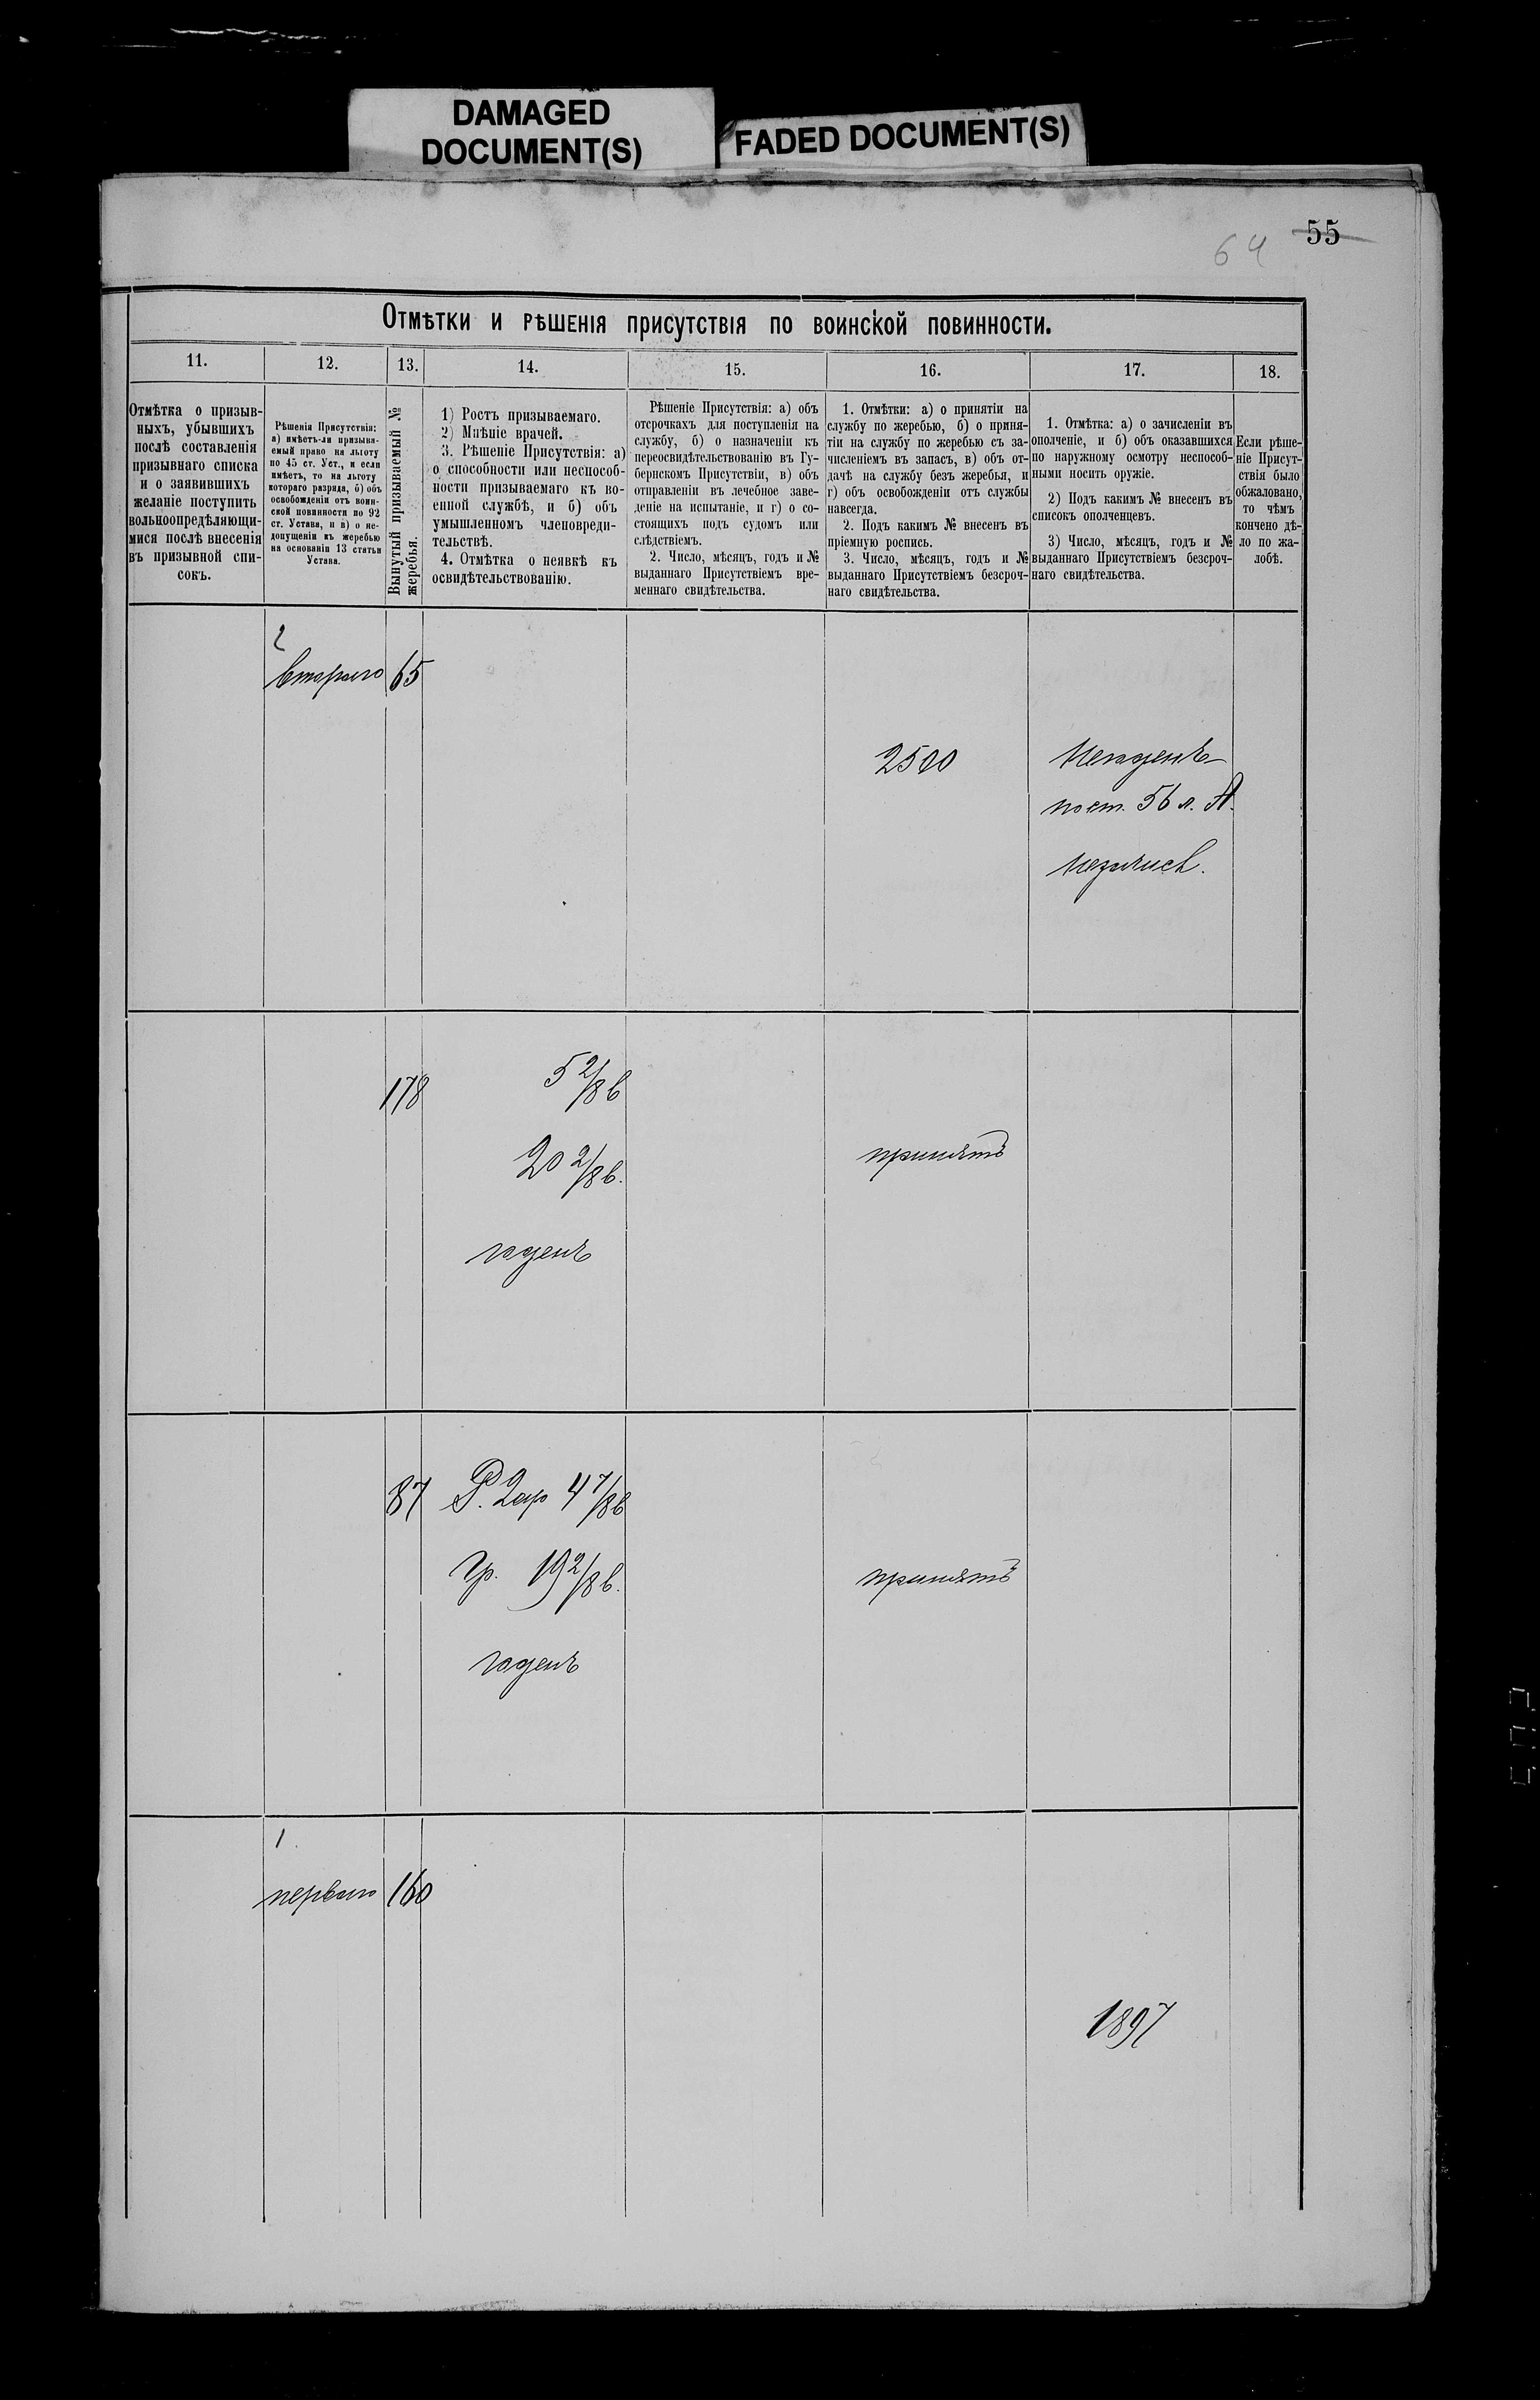 DAMAGED
DOCUMENT(S)
FADED DOCUMENT(S)
64 55
Отмѣтки и рѣшенія присутствія по воинской повинности.
11. 12. 13. 14. 15. 16. 17. 18.
Отмѣтка о призыв-
ныхъ, убывшихъ
послѣ составленія
призывнаго списка
и о заявившихъ
желаніе поступить
вольноопредѣляющи-
мися послѣ внесенія
въ призывной спи-
сокъ.
Рѣшенія Присутствія:
а) имѣетъ-ли призыва-
емый право на льготу
по 45 ст. Уст., и если
имѣетъ, то на льготу
котораго разряда, б) объ
освобожденіи отъ воин-
ской повинности по 92
ст. Устава, и в) о не-
допущеніи къ жеребью
на основаніи 13 статьи
Устава.
Вынутый призываемый №
жеребья.
1) Ростъ призываемаго.
2) Мнѣніе врачей.
3. Рѣшеніе Присутствія: а)
о способности или неспособ-
ности призываемаго къ во-
енной службѣ, и б) объ
умышленномъ членовреди-
тельствѣ.
4. Отмѣтка о неявкѣ къ
освидѣтельствованію.
Рѣшеніе Присутствія: а) объ
отсрочкахъ для поступленія на
службу, б) о назначеніи къ
переосвидѣтельствованію въ Гу-
бернскомъ Присутствіи, в) объ
отправленіи въ лечебное заве-
деніе на испытаніе, и г) о со-
стоящихъ подъ судомъ или
слѣдствіемъ.
2. Число, мѣсяцъ, годъ и №
выданнаго Присутствіемъ вре-
меннаго свидѣтельства.
1. Отмѣтки: а) о принятіи на
службу по жеребью, б) о приня-
тіи на службу по жеребью съ за-
численіемъ въ запасъ, в) объ от-
дачѣ на службу безъ жеребья, и
г) объ освобожденіи отъ службы
навсегда.
2. Подъ какимъ № внесенъ въ
пріемную роспись.
3. Число, мѣсяцъ, годъ и №
выданнаго Присутствіемъ безсроч-
наго свидѣтельства.
1. Отмѣтка: а) о зачисленіи въ
ополченіе, и б) объ оказавшихся
по наружному осмотру неспособ-
ными носить оружіе.
2) Подъ какимъ № внесенъ въ
списокъ ополченцевъ.
3) Число, мѣсяцъ, годъ и №
выданнаго Присутствіемъ безсроч-
наго свидѣтельства.
Если рѣше-
ніе Присут-
ствія было
обжаловано,
то чѣмъ
кончено дѣ-
ло по жа-
лобѣ.
2
втораго 65
2500
Негоденъ
по ст. 56 л. А.
178
5 2/8 в
20 2/8 в.
годенъ
принятъ
87
Р. 2 ар 4 7/8 в
Гр. 19 2/8 в.
годенъ
принятъ
1
перваго 160
1897